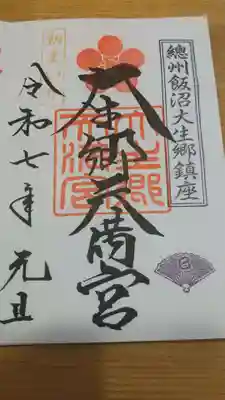 總州飯沼大生郷鎮座
大生郷天満宮
令和七年 元旦
巳